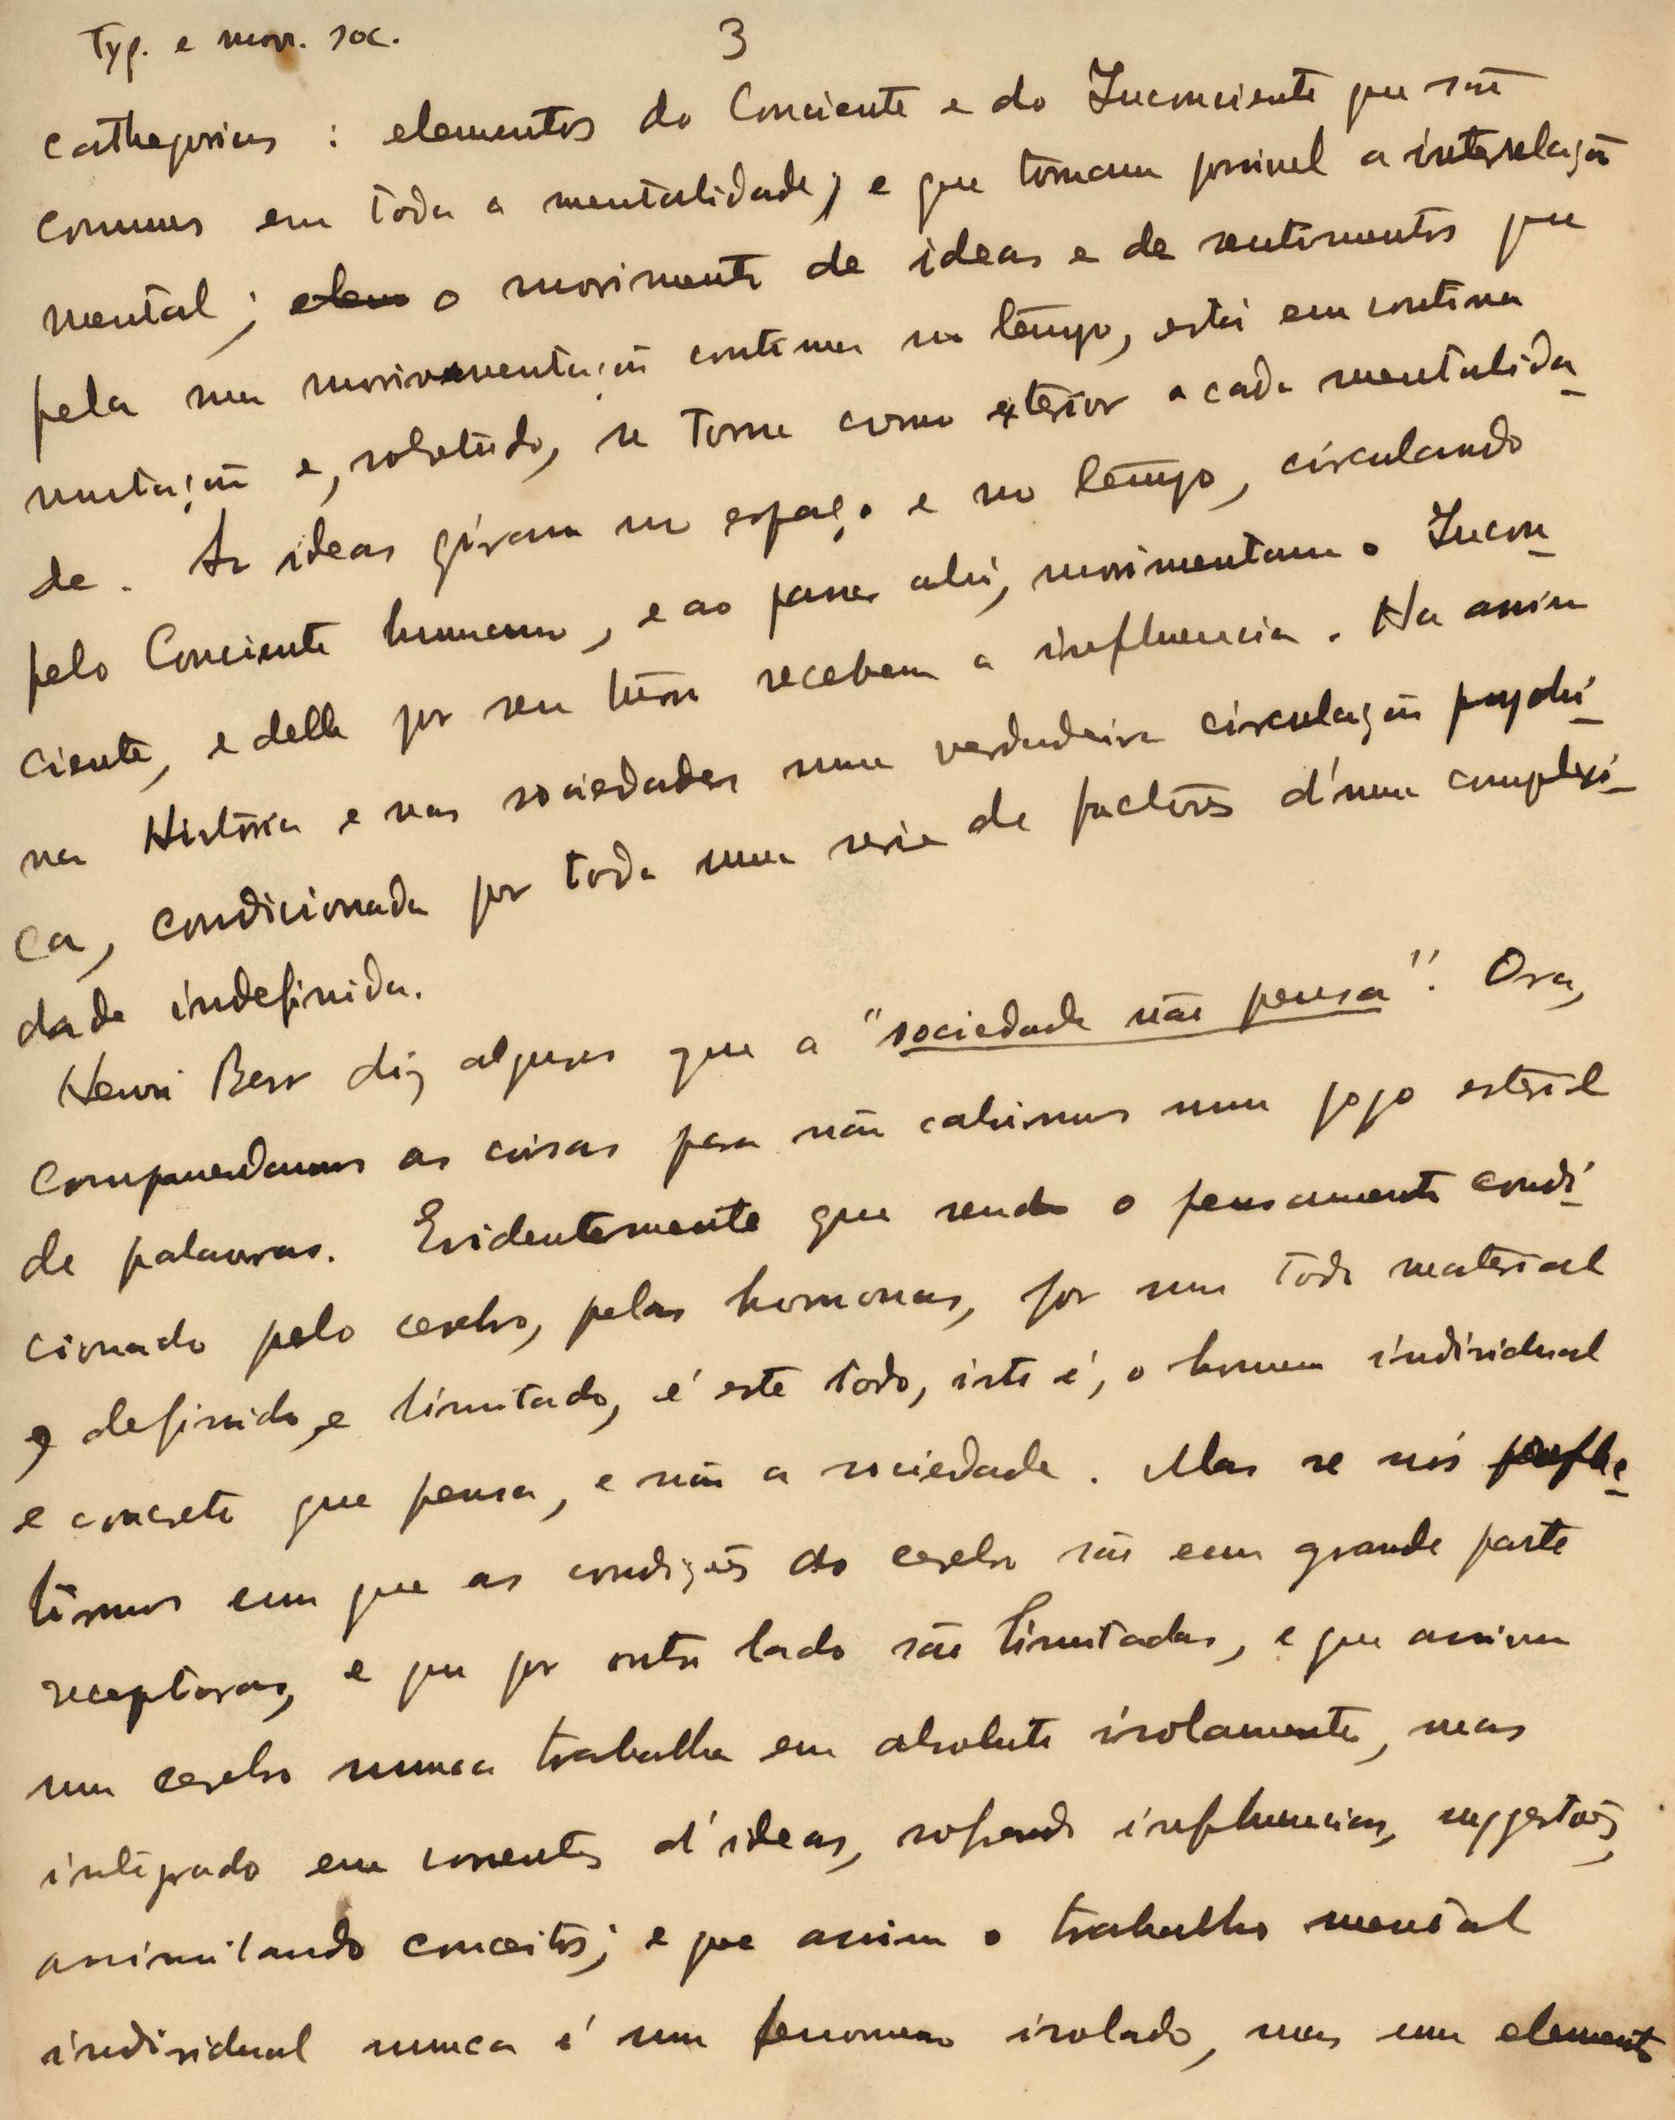 Typ. e mov. soc.
3
cathegorias : elementos do Conciente e do Inconciente que são
communs em toda a mentalidade, e que tornam possivel a interrelação
mental; elem o movimento de ideas e de sentimentos que
pela sua movimentação continua no tempo, está em continua
mutação e, sobretudo, se torna como exterior a cada mentalida-
de. As ideas giram no espaço e no tempo, circulando
pelo Conciente humano, e ao passar ahi, movimentam o Incon-
ciente, e delle por seu turno recebem a influencia. Ha assim
na História e nas sociedades uma verdadeira circulação psychi-
ca, condicionada por toda uma serie de factores d'uma complexi-
dade indefinida.
Henri Berr diz algures que a "sociedade não pensa". Ora,
comprehendamos as coisas para não cahirmos num jogo esteril
de palavras. Evidentemente que sendo o pensamento condi-
cionado pelo cerebro, pelas hormonas, por um todo material
e definido e limitado, é este todo, isto é, o homem individual
e concreto que pensa, e não a sociedade. Mas se nós refle-
tirmos em que as condições do cerebro são em grande parte
receptoras, e que por outro lado são limitadas, e que assim
um cerebro nunca trabalha em absoluto isolamento, mas
integrado em correntes d'ideas, sofrendo influencias, suggestões,
assimilando conceitos; e que assim o trabalho mental
individual nunca é um fenomeno isolado, mas um elemento